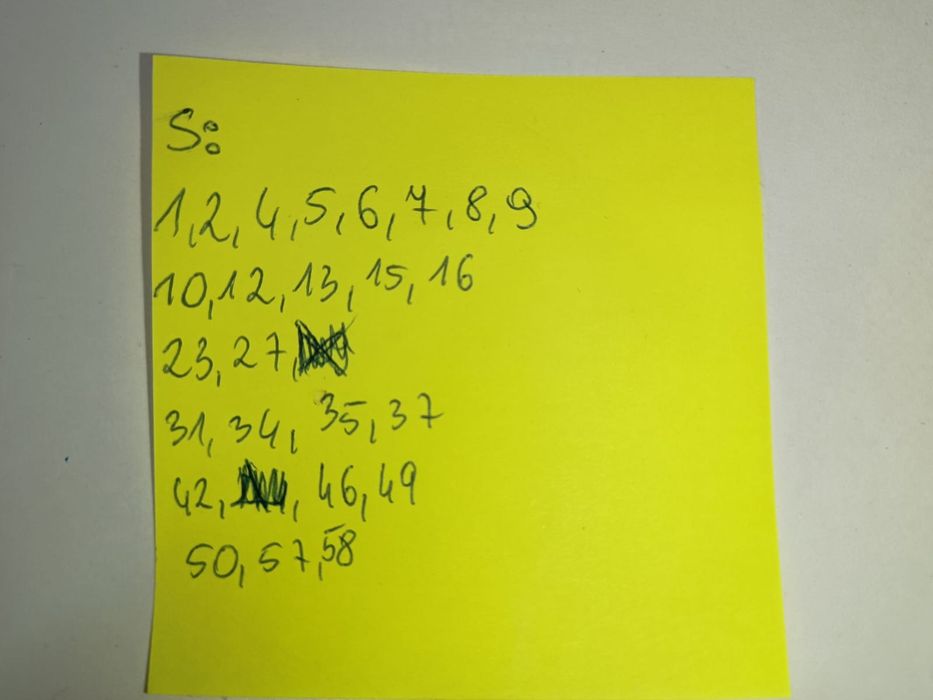 S:
1,2,4,5,6,7,8,9
10,12,13,15,16
23,27,
31,34,35,37
42, , 46,49
50,57,58